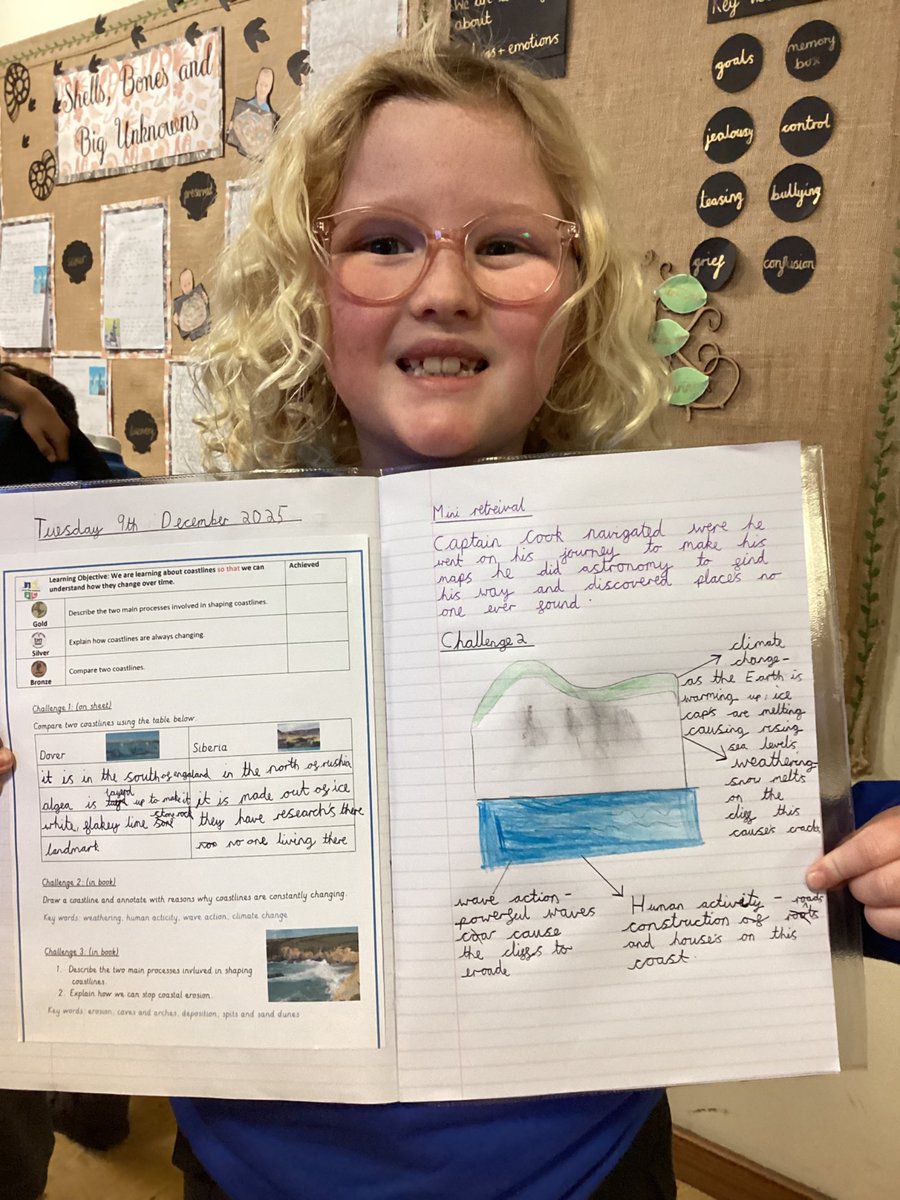 Shells, Bones and
Big Unknowns
about
+ emotions
Key
goals
memory
box
jealousy
control
teasing
bullying
grief
confusion
preserved
discovery
Tuesday 9th December 2025
Learning Objective: We are learning about coastlines so that we can
understand how they change over time.
Achieved
Gold
Describe the two main processes involved in shaping coastlines.
Silver
Explain how coastlines are always changing.
Bronze
Compare two coastlines.
Challenge 1: (on sheet)
Compare two coastlines using the table below.
Dover
Siberia
it is in the south of engaland
in the north of rushia
algea is layerd up to make it
it is made out of ice
white, flakey line stone rock
they have research's there
landmark
no one living there
Challenge 2: (in book)
Draw a coastline and annotate with reasons why coastlines are constantly changing.
Key words: weathering, human acticity, wave action, climate change
Challenge 3: (in book)
1. Describe the two main processes invlured in shaping
coastlines.
2. Explain how we can stop coastal erosion.
Key words: erosion, caves and arches, deposition, spits and sand dunes
Mini retreival
Captain Cook navigated were he
went on his journey to make his
maps he did astronomy to find
his way and discovered places no
one ever found.
Challenge 2
climate
change-
as the Earth is
warming up, ice
caps are melting
causing rising
sea levels
weathering-
snow melts
on the
cliff this
causes cracks
wave action-
powerful waves
cause
the cliffs to
eroade
Human activity - roads
construction of
and house's on this
coast.